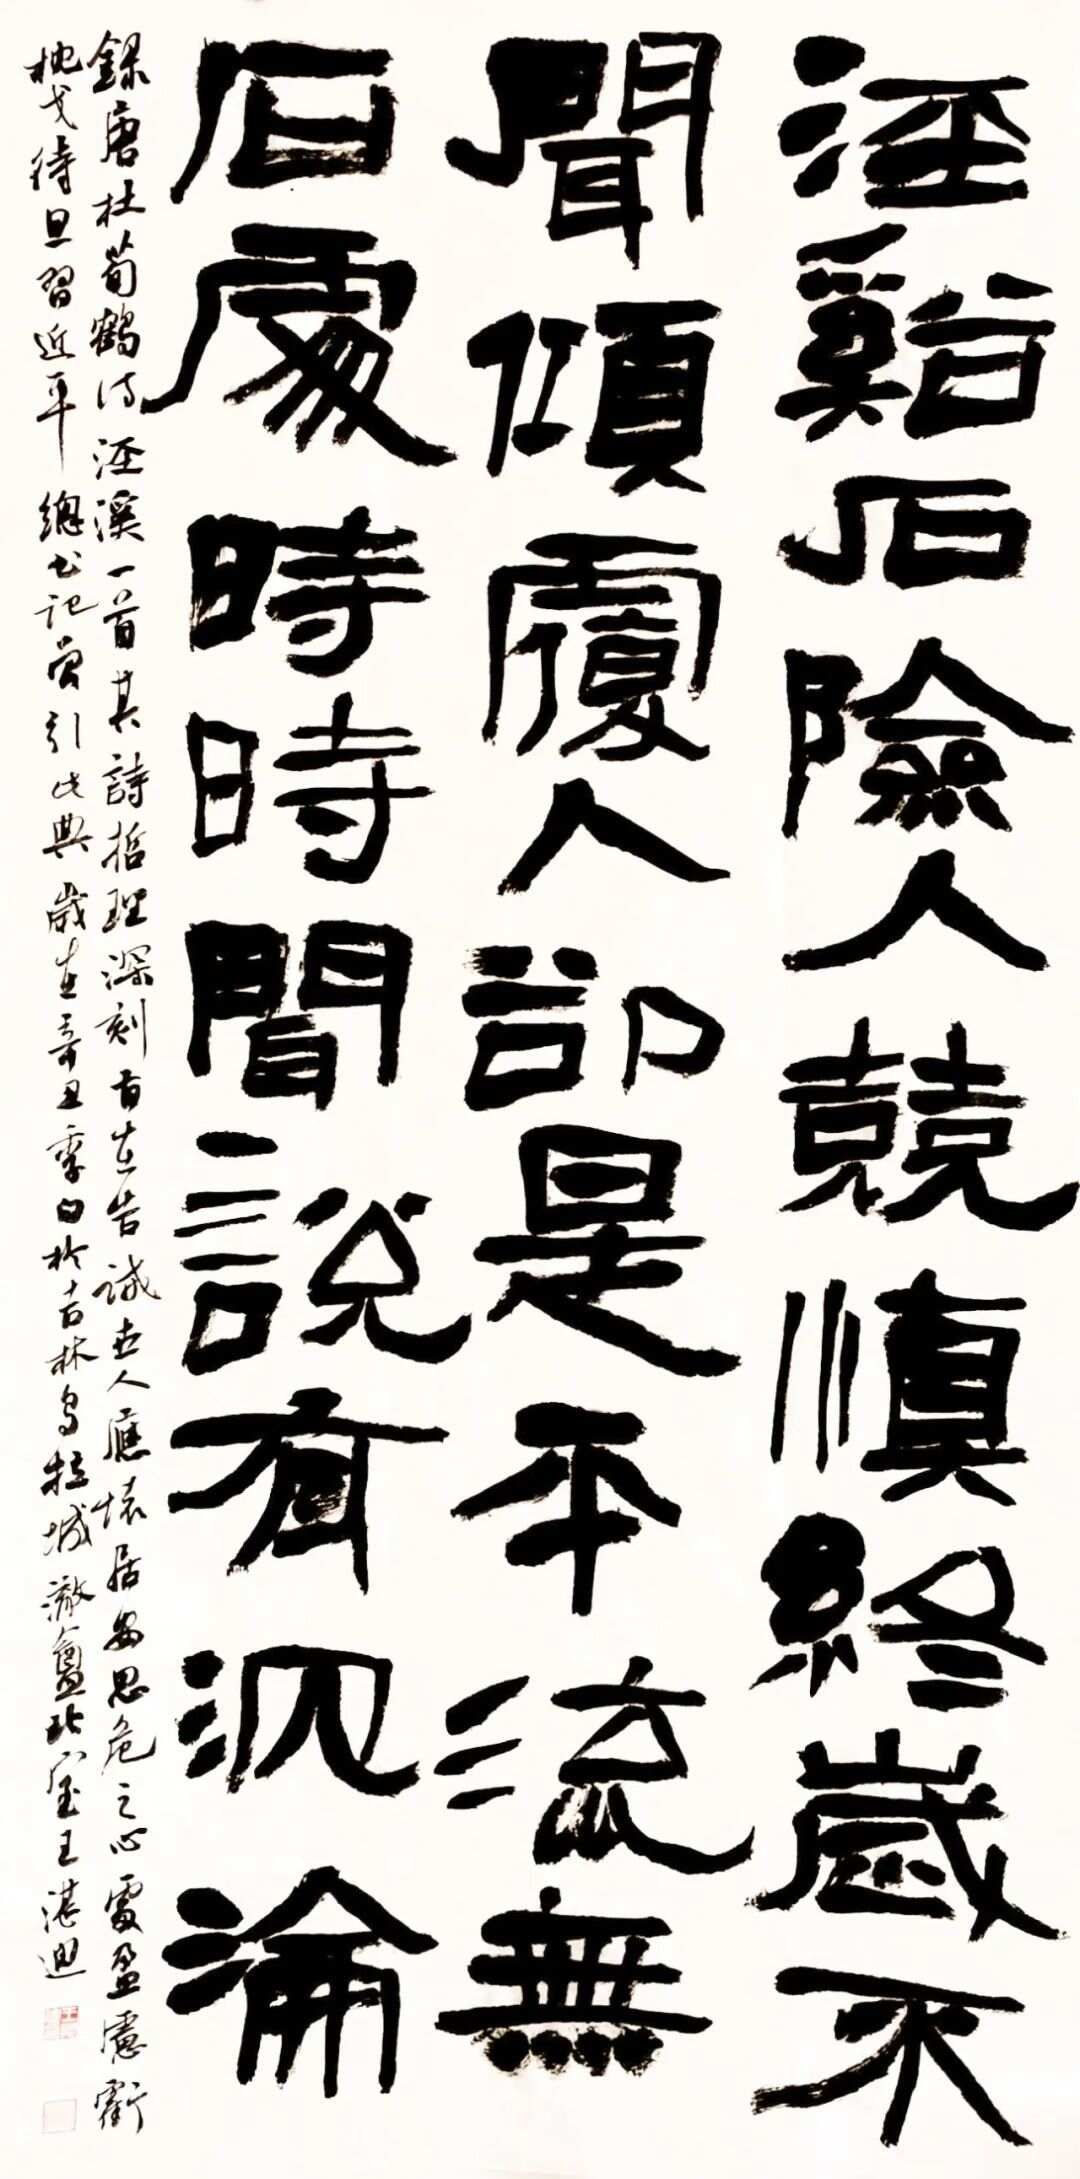 涇谿石險人兢慎終歲不
聞傾覆人卻是平流無
石處時時聞說有沉淪
錄唐杜荀鶴詩涇溪一首其詩哲理深刻旨在告誡世人應懷居安思危之心處盈慮虧
枕戈待旦習近平總書記曾引此典歲在辛丑季白於吉林烏拉城澈盦北窗王湛迴